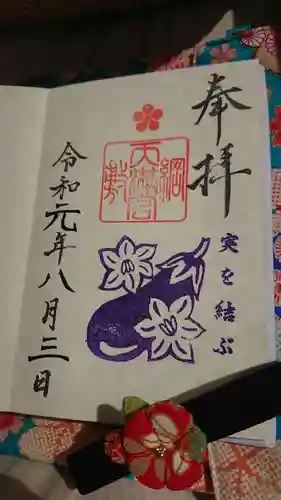 奉拝
綱敷天満宮
実を結ぶ
令和元年八月三日